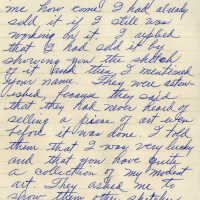 me how come I had already
sold it if I still was
working on it. I replied
that I had sold it by
showing you the sketch
of it and then, I mentioned
your name. They were aston-
ished, because they said
that they had never heard of
selling a piece of art even
before it was done. I told
them that I was very lucky
and that you have quite
a collection of my modest
art. They asked me to
show them other sketches